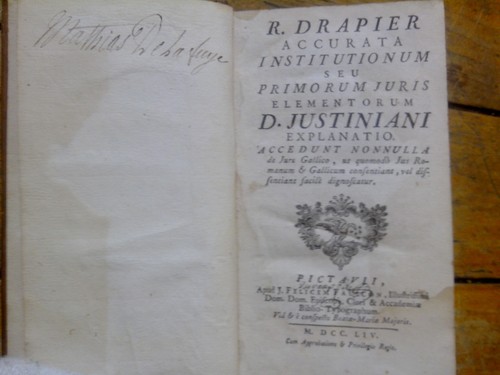 Mathias Delahaye
R. DRAPIER
ACCURATA
INSTITUTIONUM
SEU
PRIMORUM JURIS
ELEMENTORUM
D. JUSTINIANI
EXPLANATIO.
ACCEDUNT NONNULLA
de Jure Gallico, ut quomodò Jus Ro-
manum & Gallicum consentiant, vel dis-
sentiant facilè dignoscatur.
PICTAVII,
Apud J. FELICEM FAULCON, Illustrissimi
Dom. Dom. Episcopi, Cleri & Academiæ
Biblio-Typographum.
M. DCC. LIV.
Cum Approbatione & Privilegio Regis.